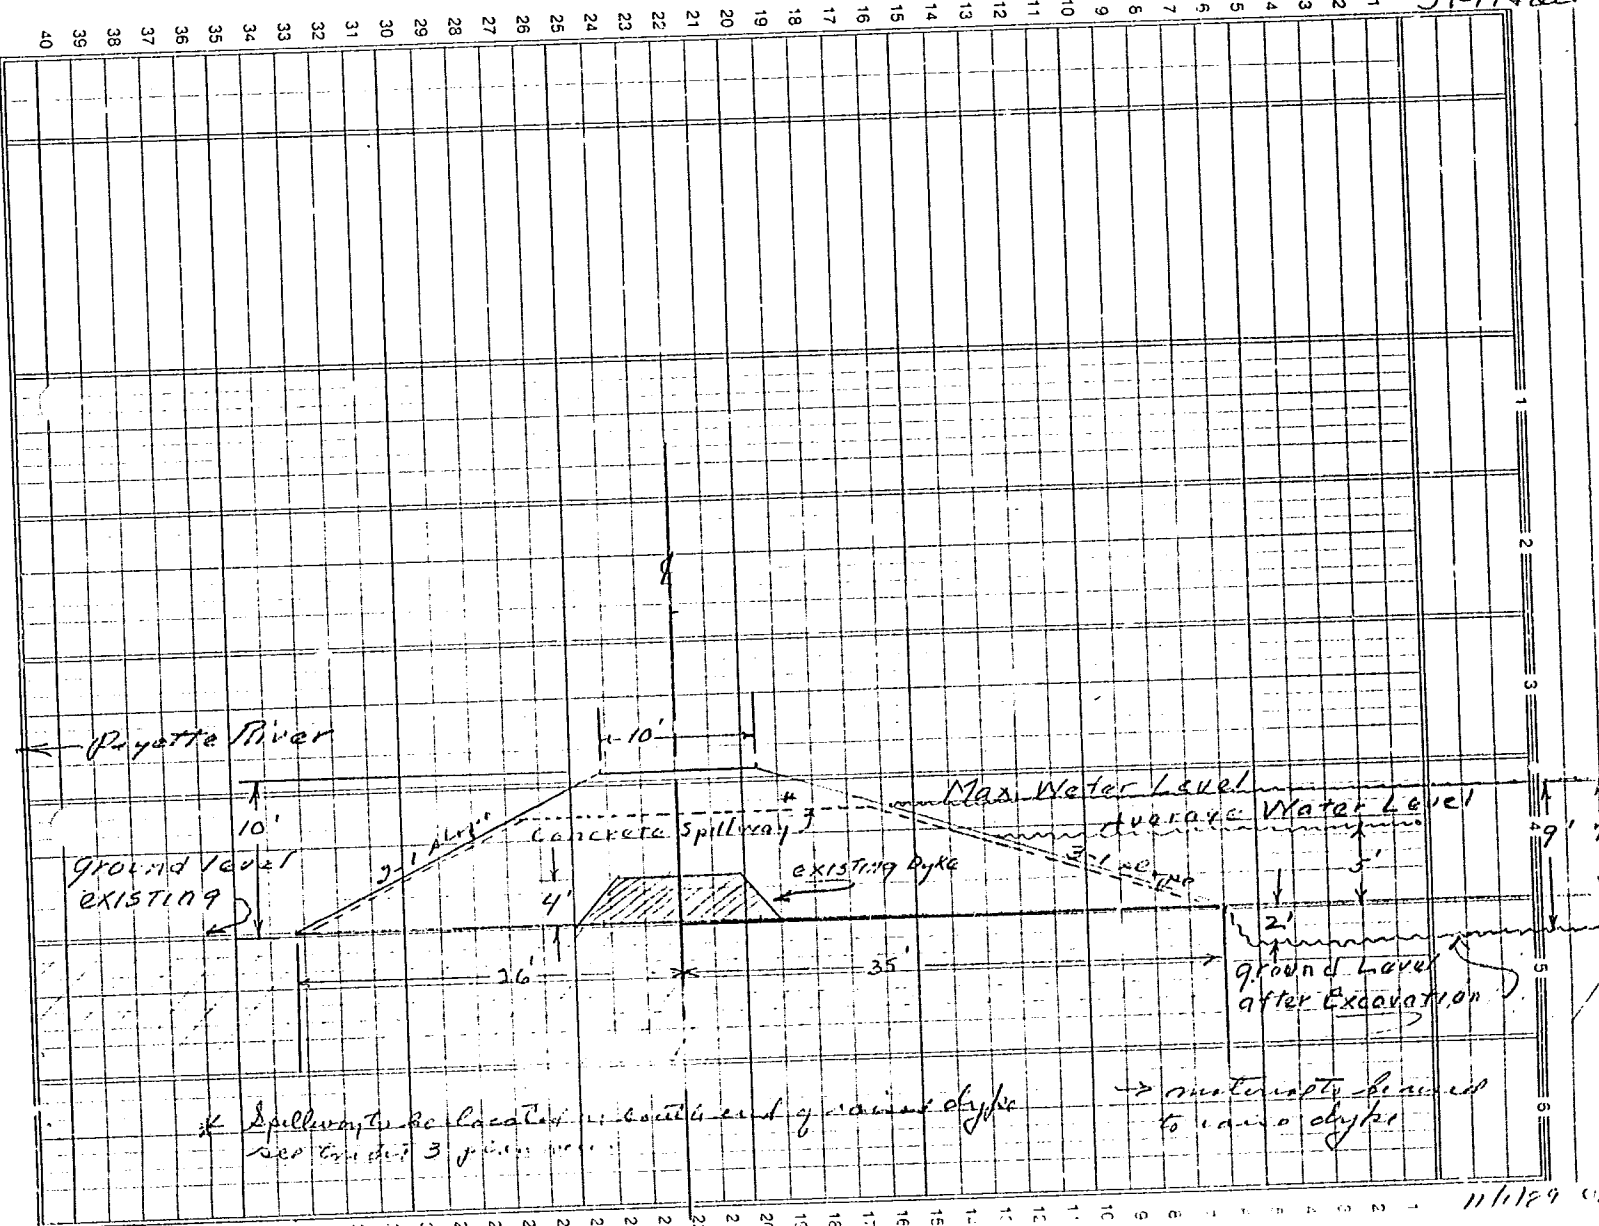 40 39 38 37 36 35 34 33 32 31 30 29 28 27 26 25 24 23 22 21 20 19 18 17 16 15 14 13 12 11 10 9 8 7 6 5 4 3 2 1
1
2
3
4
5
6
Payette River
10'
Max. Water Level
Average Water Level
10'
Concrete Spillway *
9'
ground level
existing
2-1
existing Dyke
3-1
5'
4'
2'
26'
35'
ground Level
after Excavation
* Spillway to be located south end of dyke
see 3 plan
→ material to be used
to raise dyke
11/1/89